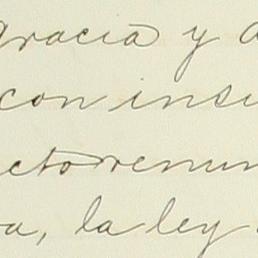 gracia y a
con insu
cto renun
a, la ley